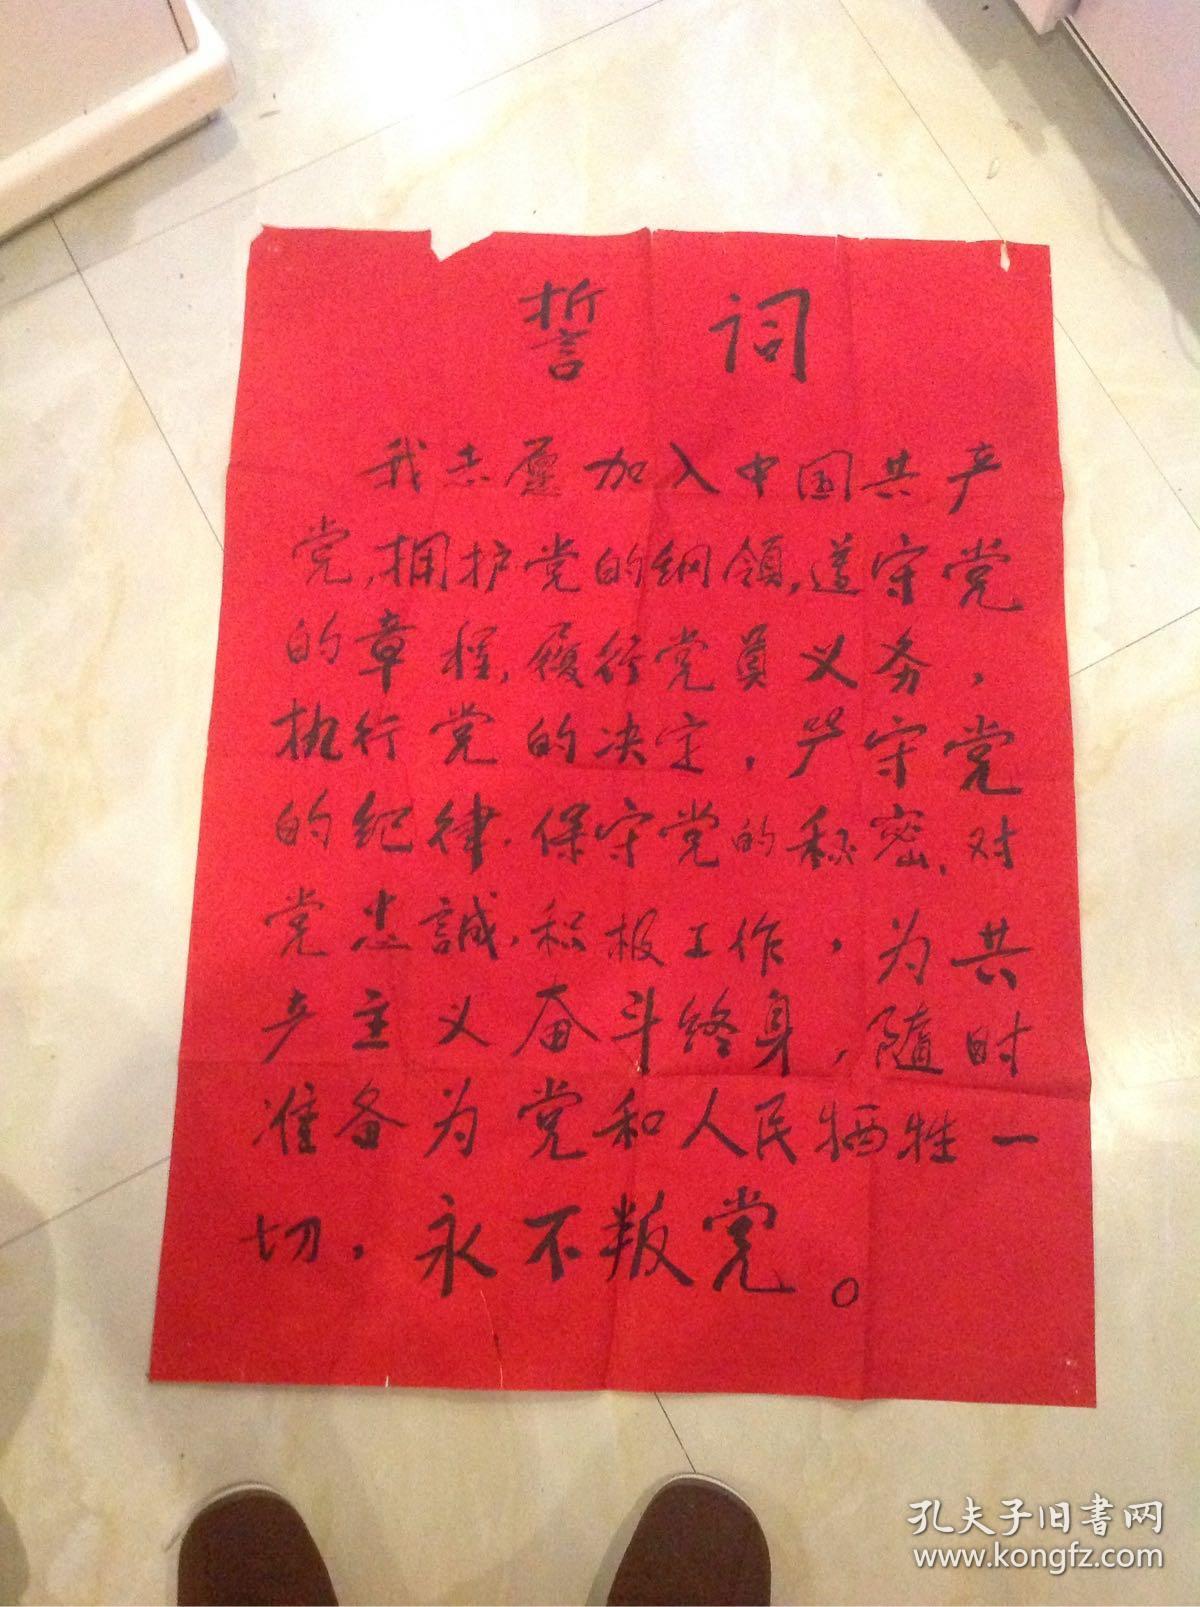 誓词
我志愿加入中国共产
党,拥护党的纲领,遵守党
的章程,履行党员义务,
执行党的决定,严守党
的纪律,保守党的秘密,对
党忠誠,积极工作,为共
产主义奋斗终身,随时
准备为党和人民牺牲一
切,永不叛党。
孔夫子旧书网
www.kongfz.com